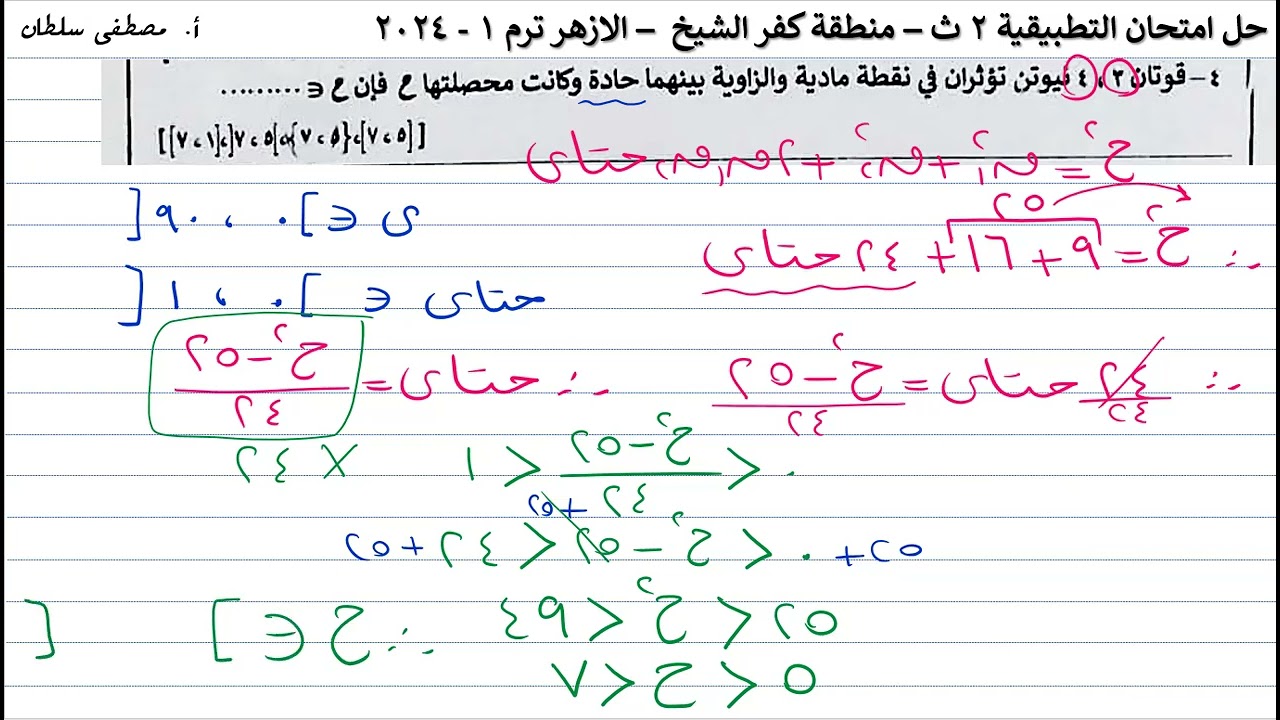 حل امتحان التطبيقية ٢ ث – منطقة كفر الشيخ – الازهر ترم ١ - ٢٠٢٤
أ. مصطفى سلطان
٤- قوتان ٣ ، ٤ نيوتن تؤثران في نقطة مادية والزاوية بينهما حادة وكانت محصلتها ح فإن ح ∈ ..........
[ [٥ ، ٧] ، {٥ ، ٧} ، ]٥ ، ٧[ ، [١ ، ٧] ]
ح٢ = ق١٢ + ق٢٢ + ٢ق١ق٢ حتاى
ى ∈ ]٠ ، ٩٠[
٢٥
∴ ح٢ = ٩ + ١٦ + ٢٤ حتاى
حتاى ∈ ]٠ ، ١[
∴ ٢٤ حتاى / ٢٤ = ح٢ – ٢٥ / ٢٤
∴ حتاى = ح٢ – ٢٥ / ٢٤
٠ < ح٢ – ٢٥ / ٢٤ < ١
× ٢٤
٢٥ + ٠ < ح٢ – ٢٥ + ٢٥ < ٢٤ + ٢٥
٢٥ < ح٢ < ٤٩
∴ ح ∈ ] [
٥ < ح < ٧